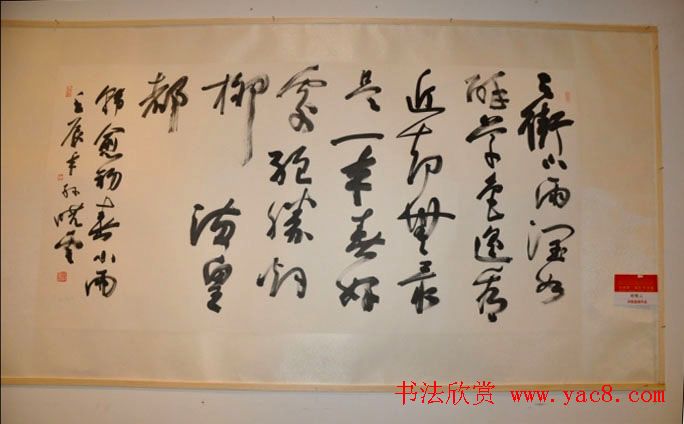 天街小雨潤如
酥草色遥看
近却無最
是一年春好
處絕勝烟
柳滿皇
都
韓愈初春小雨
壬辰年孫曉雲
书法欣赏 www.yac8.com